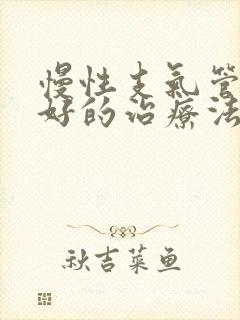 慢性支氣管
好的治療法
秋吉菜鱼